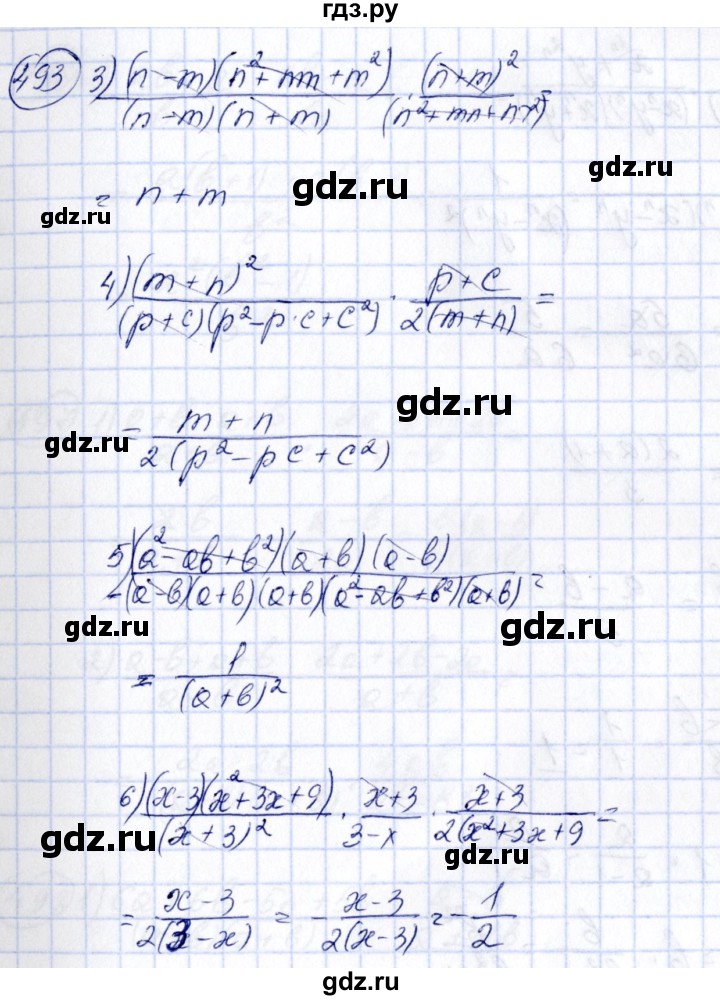 гдз.ру
493 3) (n-m)(n²+nm+m²)/(n-m)(n+m) · (n+m)²/(n²+mn+n²)=
= n+m
gdz.ru
gdz.ru
4) (m+n)²/(p+c)(p²-p·c+c²) · p+c/2(m+n) =
gdz.ru
= m+n/2(p²-pc+c²)
gdz.ru
5) (a²-ab+b²)(a+b)(a-b)/-(a-b)(a+b)(a+b)(a²-ab+b²)(a+b) =
gdz.ru
gdz.ru
= 1/(a+b)²
6) (x-3)(x²+3x+9)/(x+3)² · x+3/3-x · x+3/2(x²+3x+9 =
gdz.ru
gdz.ru
= x-3/2(3-x) = -x-3/2(x-3) = -1/2
gdz.ru
гдз.ру